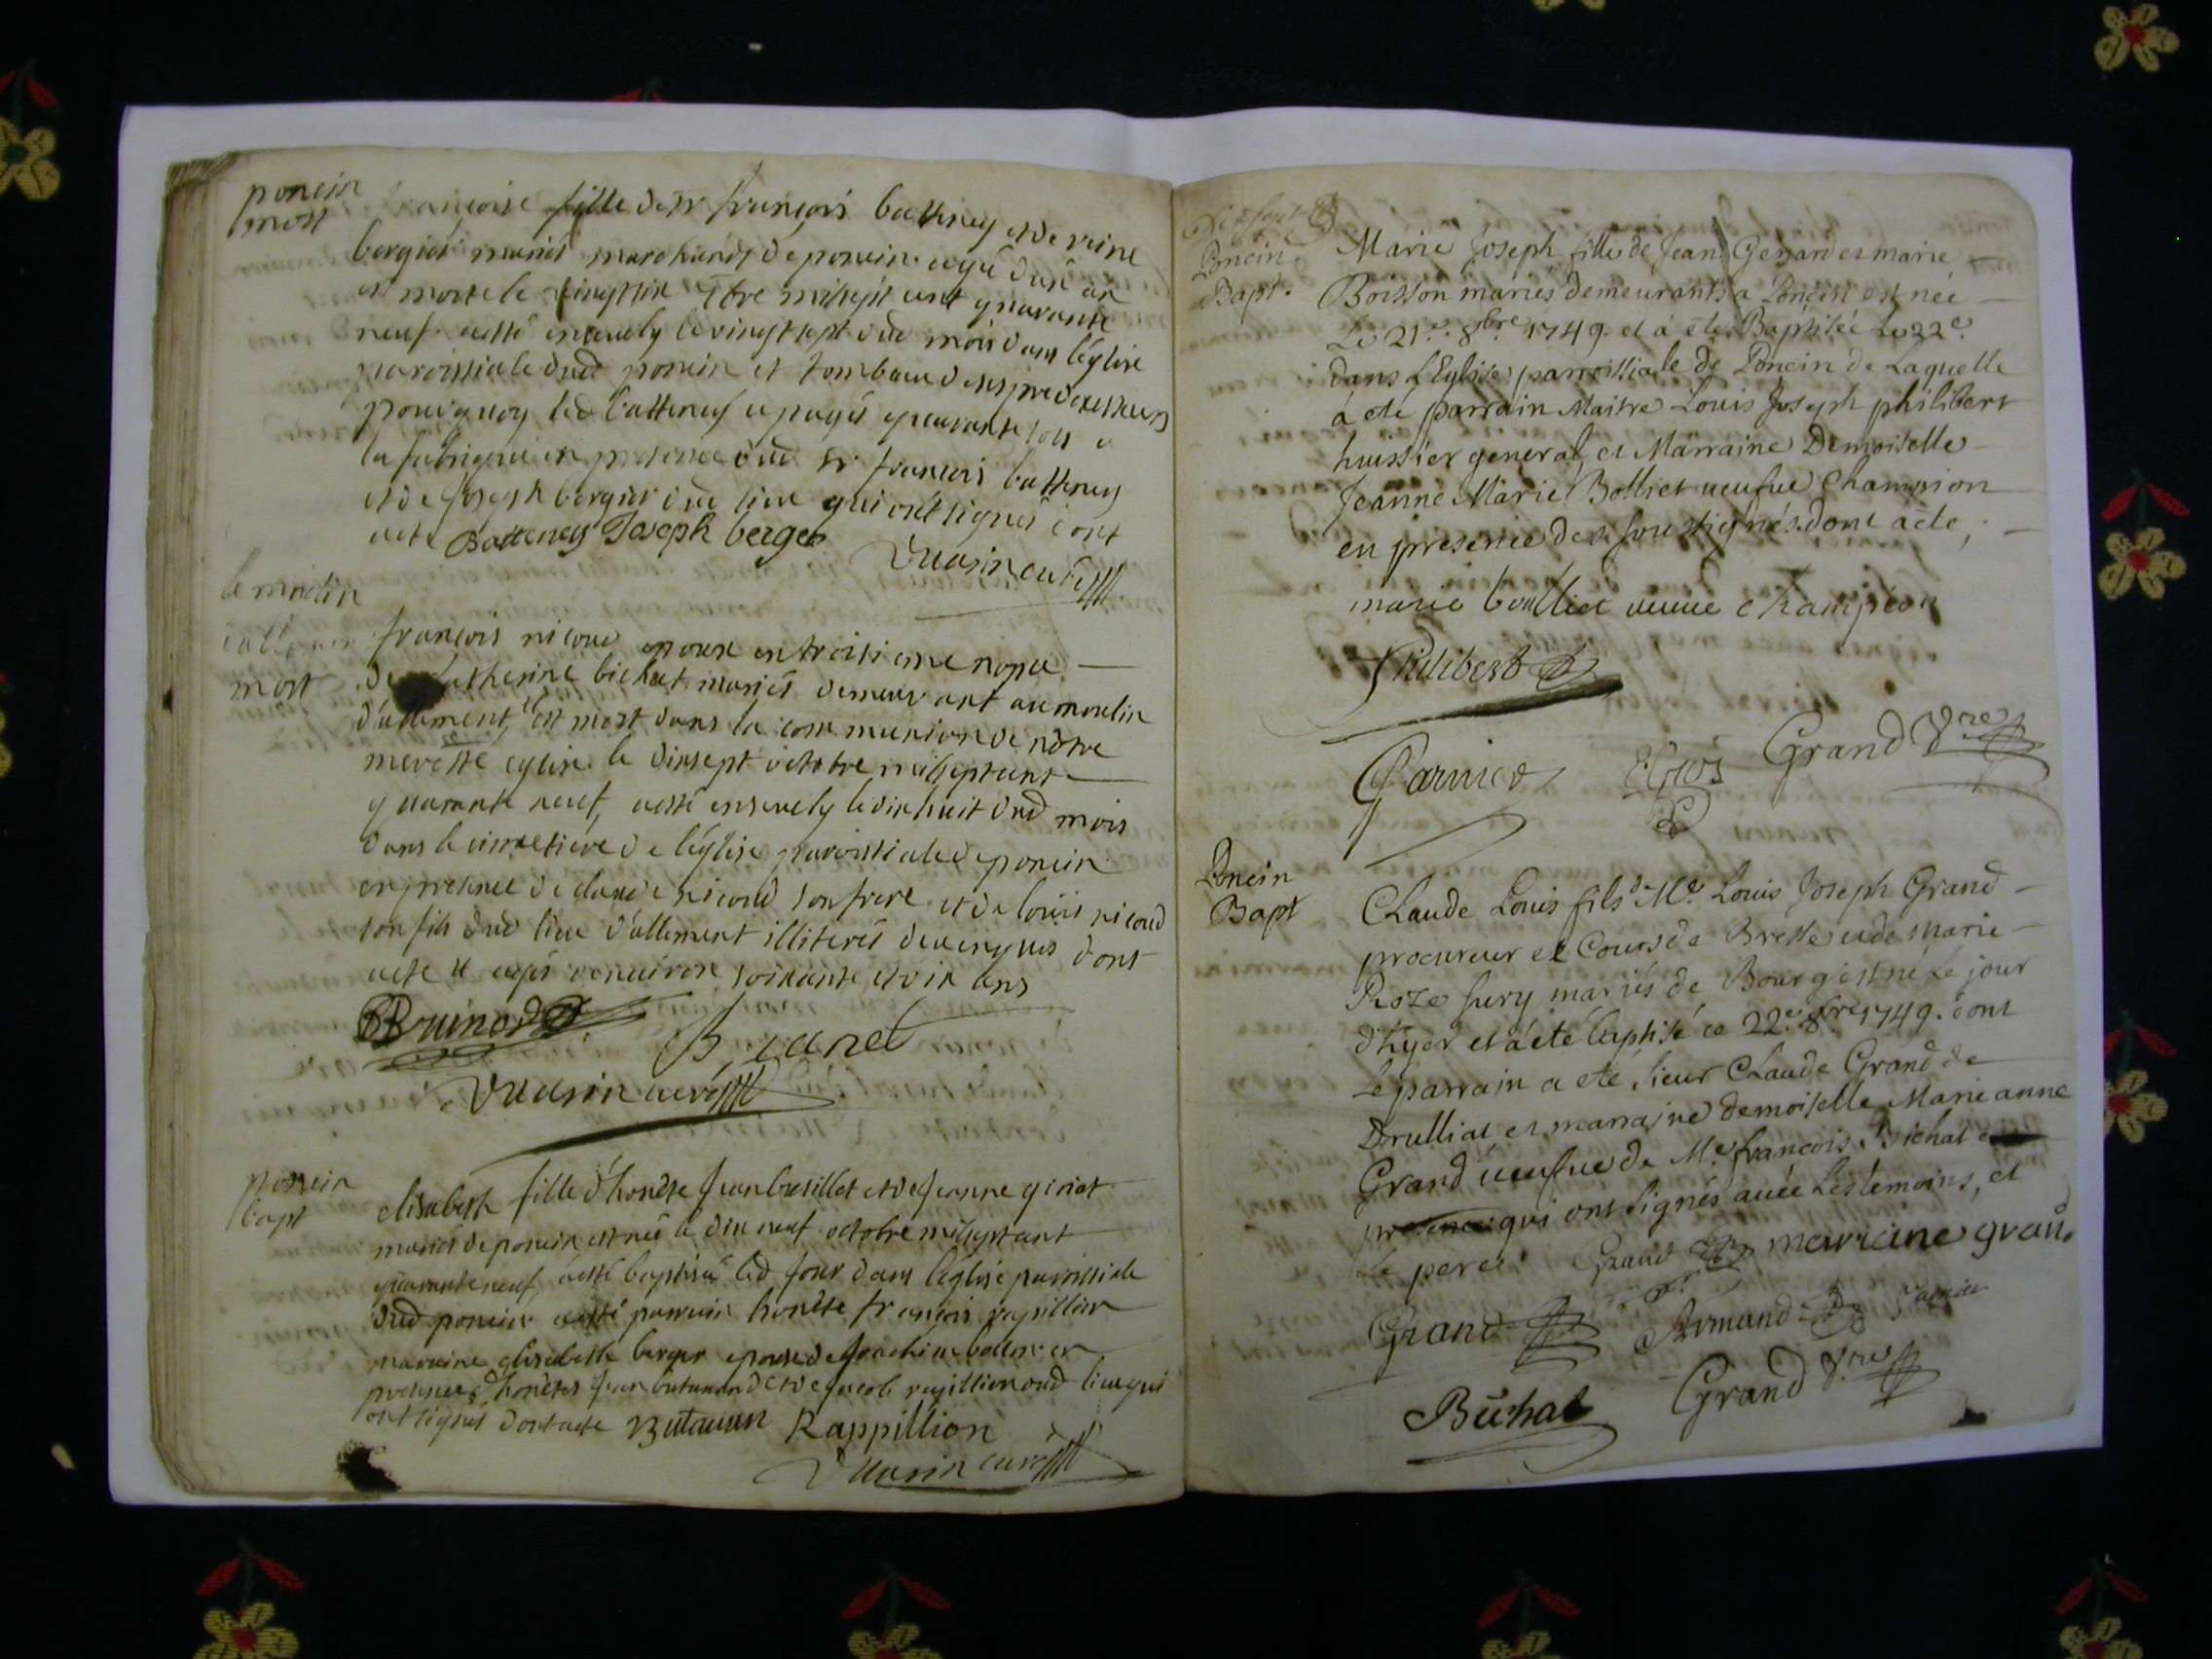 poncin
mort
françoise fille de sr françois batteney et de reine
bergier mariés marchands de poncin agé d'un an
est morte le vingt six 7bre mil sept cent quarante
neuf aesté ensevely le vingt sept dud mois dans léglise
parroissiale dud poncin et tombeau de ses predecesseurs
pourquoy led batteney a payé quarante sols a
la fabrique en presence dud sr françois batteney
et de Joseph bergier dud lieu qui ont signés dont
acte Batteney Joseph berger
Vuarin curé
le moulin
mort
françois nicoud epoux en troisieme nopce
de Catherine bichat mariés demeurant au moulin
d'allement, est mort dans la communion de nôtre
mere ste eglise le dixsept octobre mil sept cent
quarante neuf, aesté ensevely le dixhuit dud mois
dans le cimetiere de léglise parroissiale de poncin
en presence de claude nicoud son frere et de louis nicoud
son fils dud lieu d'allement illiterés de ce enquis dont
acte il agé denviron soixante et dix ans
Vuarin curé
poncin
bapt
elisabeth fille d'honête Jean basillet et de Jeanne giriat
mariés de poncin est née le dix neuf octobre mil sept cent
quarante neuf, aesté baptisée led jour dans léglise parroissiale
dud poncin aesté parrain honête françois rapillion
maraine elisabeth berger epouse de Joachim
presence d'honêtes Jean butavand et de Jacob rapillion dud lieu qui
ont signés dont acte Butavan Rappillion
Vuarin curé
Poncin
Bapt.
Marie Joseph fille de Jean Genard et marie
Boisson mariés demeurants a Poncin est née
Le 21e. 8bre 1749. et à eté Baptisée Le 22e.
dans L'Eglise parroissiale de Poncin de Laquelle
à eté parrain Maitre Louis Joseph philibert
huissier general, et Marraine Demoiselle
Jeanne Marie Bolliet veufue Champion
en presence des soussignés dont acte,
marie boulliet veuve champion
Philibert
Garnier Gros Grand Vre
Poncin
Bapt
Claude Louis fils d Me. Louis Joseph Grand
procureur ez Cours de Bresse et de Marie
Roze fury mariés de Bourg est né Le jour
d'hyer et à été baptisé ce 22e. 8bre 1749. dont
Le parrain a eté, sieur Claude Grand de
Drulliat et marraine demoiselle Marie anne
Grand veufue de Me. françois Bichat
presence qui ont signés avec Les temoins, et
Le pere. Grand mariane grand
Grand Armand
Bichat Grand Vre